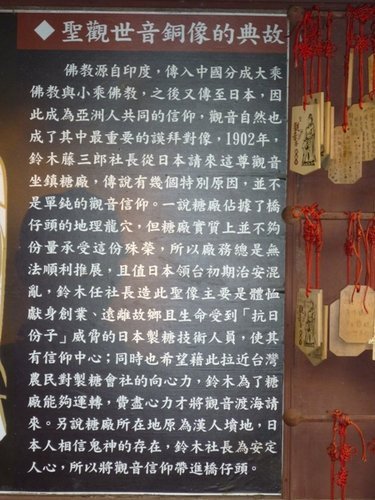 ◆ 聖觀世音銅像的典故
佛教源自印度，傳入中國分成大乘
佛教與小乘佛教，之後又傳至日本，因
此成為亞洲人共同的信仰，觀音自然也
成了其中最重要的謨拜對像，1902年，
鈴木藤三郎社長從日本請來這尊觀音
坐鎮糖廠，傳說有幾個特別原因，並不
是單純的觀音信仰。一說糖廠佔據了橋
仔頭的地理龍穴，但糖廠實質上並不夠
份量承受這份殊榮，所以廠務總是無
法順利推展，且值日本領台初期治安混
亂，鈴木任社長造此聖像主要是體恤
獻身創業、遠離故鄉且生命受到「抗日
份子」威脅的日本製糖技術人員，使其
有信仰中心；同時也希望藉此拉近台灣
農民對製糖會社的向心力，鈴木為了糖
廠能夠運轉，費盡心力才將觀音渡海請
來。另說糖廠所在地原為漢人墳地，日
本人相信鬼神的存在，鈴木社長為安定
人心，所以將觀音信仰帶進橋仔頭。